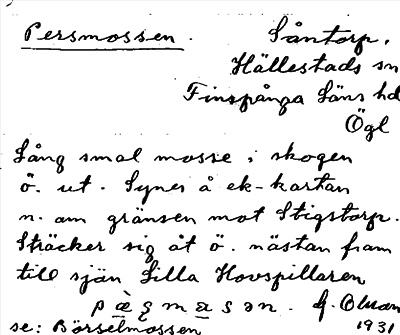 Persmossen. Såntorp.
Hällestads sn
Finspånga Läns hd
Ögl
Lång smal mosse i skogen
ö. ut. Synes å ek-kartan
n. om gränsen mot Stigstorp.
Sträcker sig åt ö. nästan fram
till sjön Lilla Hovspillaren
se: Börselmossen 1931